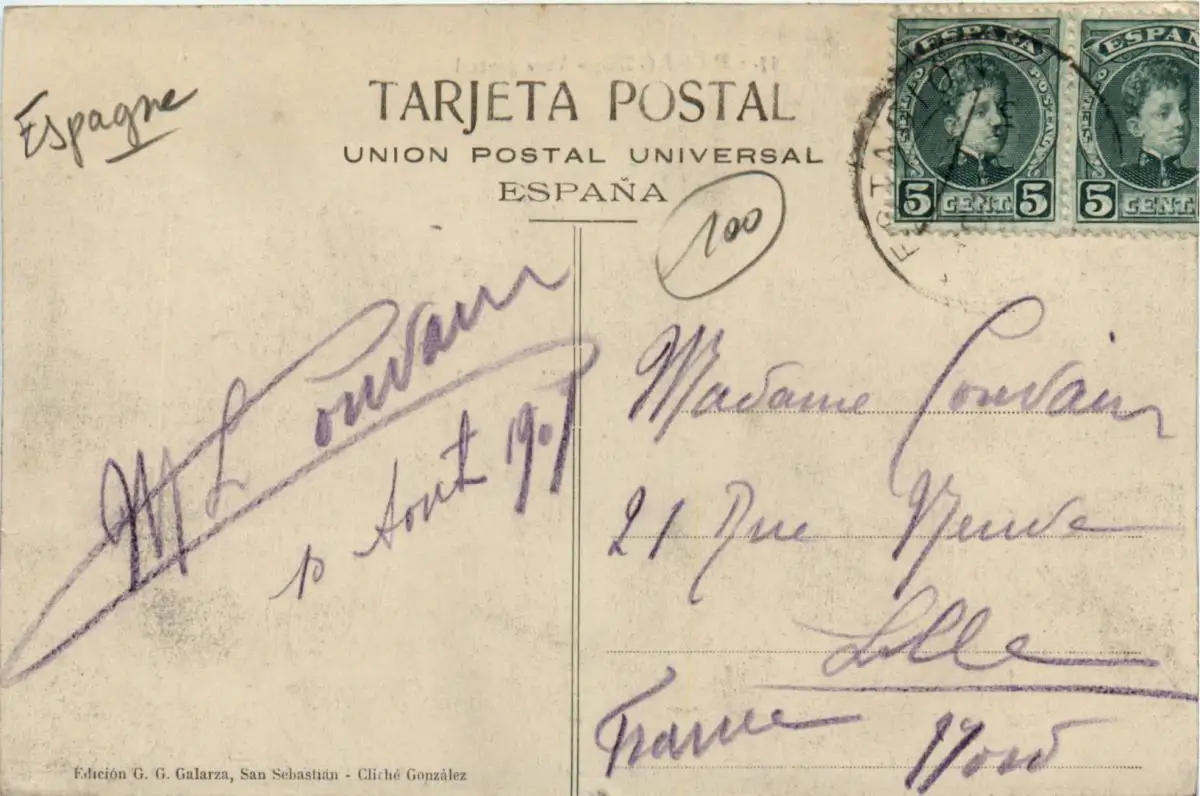 Espagne
TARJETA POSTAL
UNION POSTAL UNIVERSAL
ESPAÑA
100
ESPAÑA
5 CENT. 5
ESPAÑ
5 CENT
ESTACION
M L
Août 190
Madame
21 Rue Neuve
Lille
France Nord
Edición G. G. Galarza, San Sebastián - Cliché González